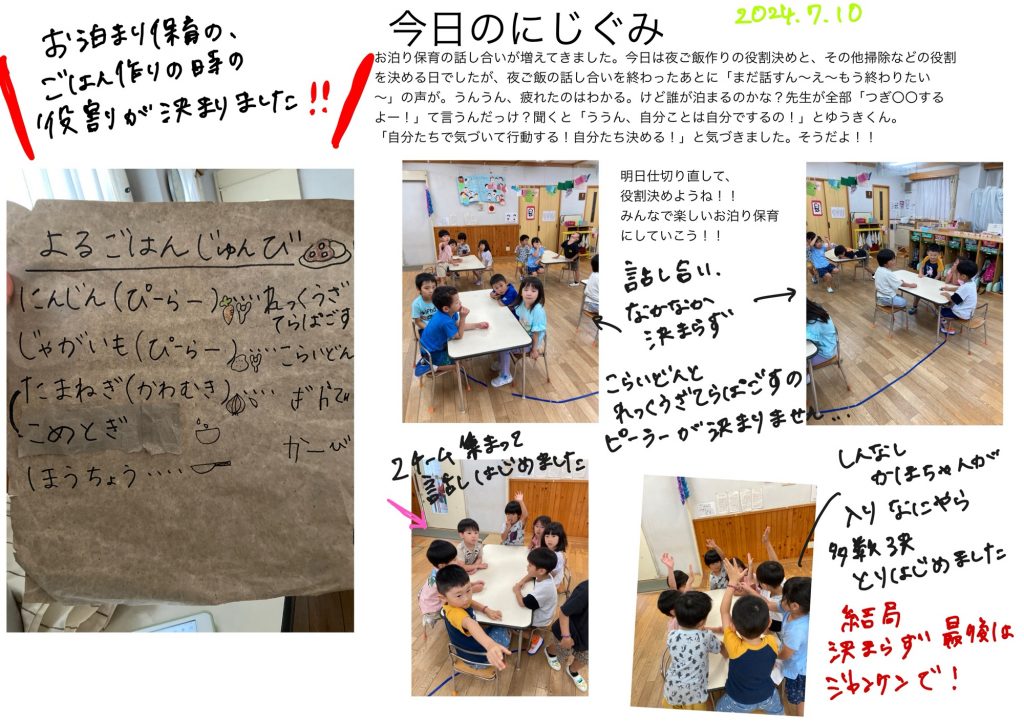 お泊まり保育の、
ごはん作りの時の
役割が決まりました!!
今日のにじぐみ
2024.7.10
お泊り保育の話し合いが増えてきました。今日は夜ご飯作りの役割決めと、その他掃除などの役割
を決める日でしたが、夜ご飯の話し合いを終わったあとに「まだ話すん〜え〜もう終わりたい
〜」の声が。うんうん、疲れたのはわかる。けど誰が泊まるのかな？先生が全部「つぎ〇〇する
よー！」て言うんだっけ？聞くと「ううん、自分ことは自分でするの！」とゆうきくん。
「自分たちで気づいて行動する！自分たち決める！」と気づきました。そうだよ！！
明日仕切り直して、
役割決めようね！！
みんなで楽しいお泊り保育
にしていこう！！
よるごはんじゅんび
にんじん(ぴーらー)…れっくうざ
てらぱごす
じゃがいも(ぴーらー)…こらいどん
たまねぎ(かわむき)…
こめとぎ
かーび
ほうちょう‥‥
話し合い、
なかなか
決まらず
こらいどんと
れっくうざてらぱごすの
ピーラーが決まりません...
2チーム集まって
話しはじめました
しんなし
かほちゃんが
入りなにやら
多数決
とりはじめました
結局
決まらず最後は
ジャンケンで！